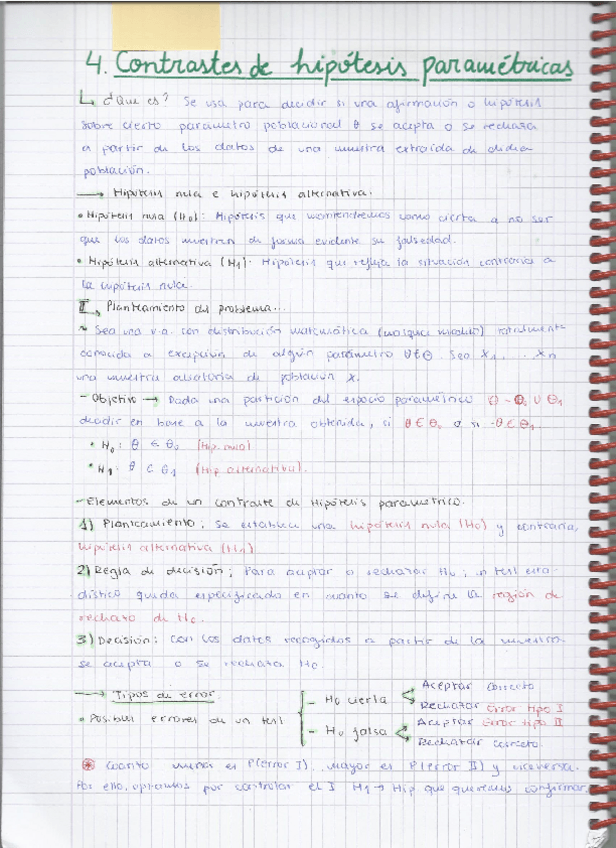 4. Contrastes de hipótesis paramétricas
¿Que es? Se usa para decidir si una afirmación o hipótesis
sobre cierto parametro poblacional θ se acepta o se rechaza
a partir de los datos de una muestra extraida de dicha
población.
→ Hipótesis nula e hipótesis alternativa.
• Hipótesis nula (H₀): Hipótesis que mantendremos como cierta a no ser
que los datos muestren de forma evidente su falsedad.
• Hipótesis alternativa (H₁): Hipótesis que refleja la situación contraria a
la hipótesis nula.
Planteamiento del problema...
~ Sea una v.a. con distribución matemática totalmente
conocida a excepción de algún parámetro θ∈Θ. Sea X₁, ... Xn
una muestra aleatoria de población X.
- Objetivo → Dada una partición del espacio paramétrico Θ = Θ₀ ∪ Θ₁
decidir en base a la muestra obtenida, si θ∈Θ₀ o si θ∈Θ₁.
• H₀: θ ∈ Θ₀ (Hip. nula)
• H₁: θ ∈ Θ₁ (Hip alternativa).
- Elementos de un contraste de Hipótesis parametrico.
1) Planteamiento: Se establece una hipótesis nula (H₀) y contraria,
hipótesis alternativa (H₁)
2) Regla de decisión; Para aceptar o rechazar H₀; un test esta-
distico queda especificado en cuanto se define la región de
rechazo de H₀.
3) Decisión: con los datos recogidos a partir de la muestra
se acepta o se rechaza H₀.
→ Tipos de error
• Posibles errores de un test
- H₀ cierta
Aceptar correcto
Rechazar Error tipo I
- H₀ falsa
Aceptar Error tipo II
Rechazar correcto.
Cuanto menor es P(error I), mayor es P(error II) y viceversa.
Por ello, optamos por controlar el I H₁→ Hip que queremos confirmar.